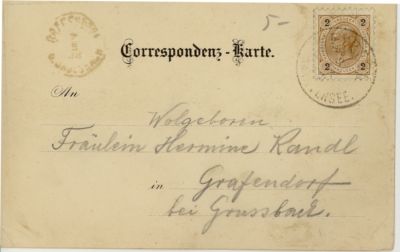 5-
2 2
2 2
Correspondenz-Karte.
ANSEE.
An
Wolgeboren
Fräulein Hermine Randl
in Grafendorf
bei Grussbach.